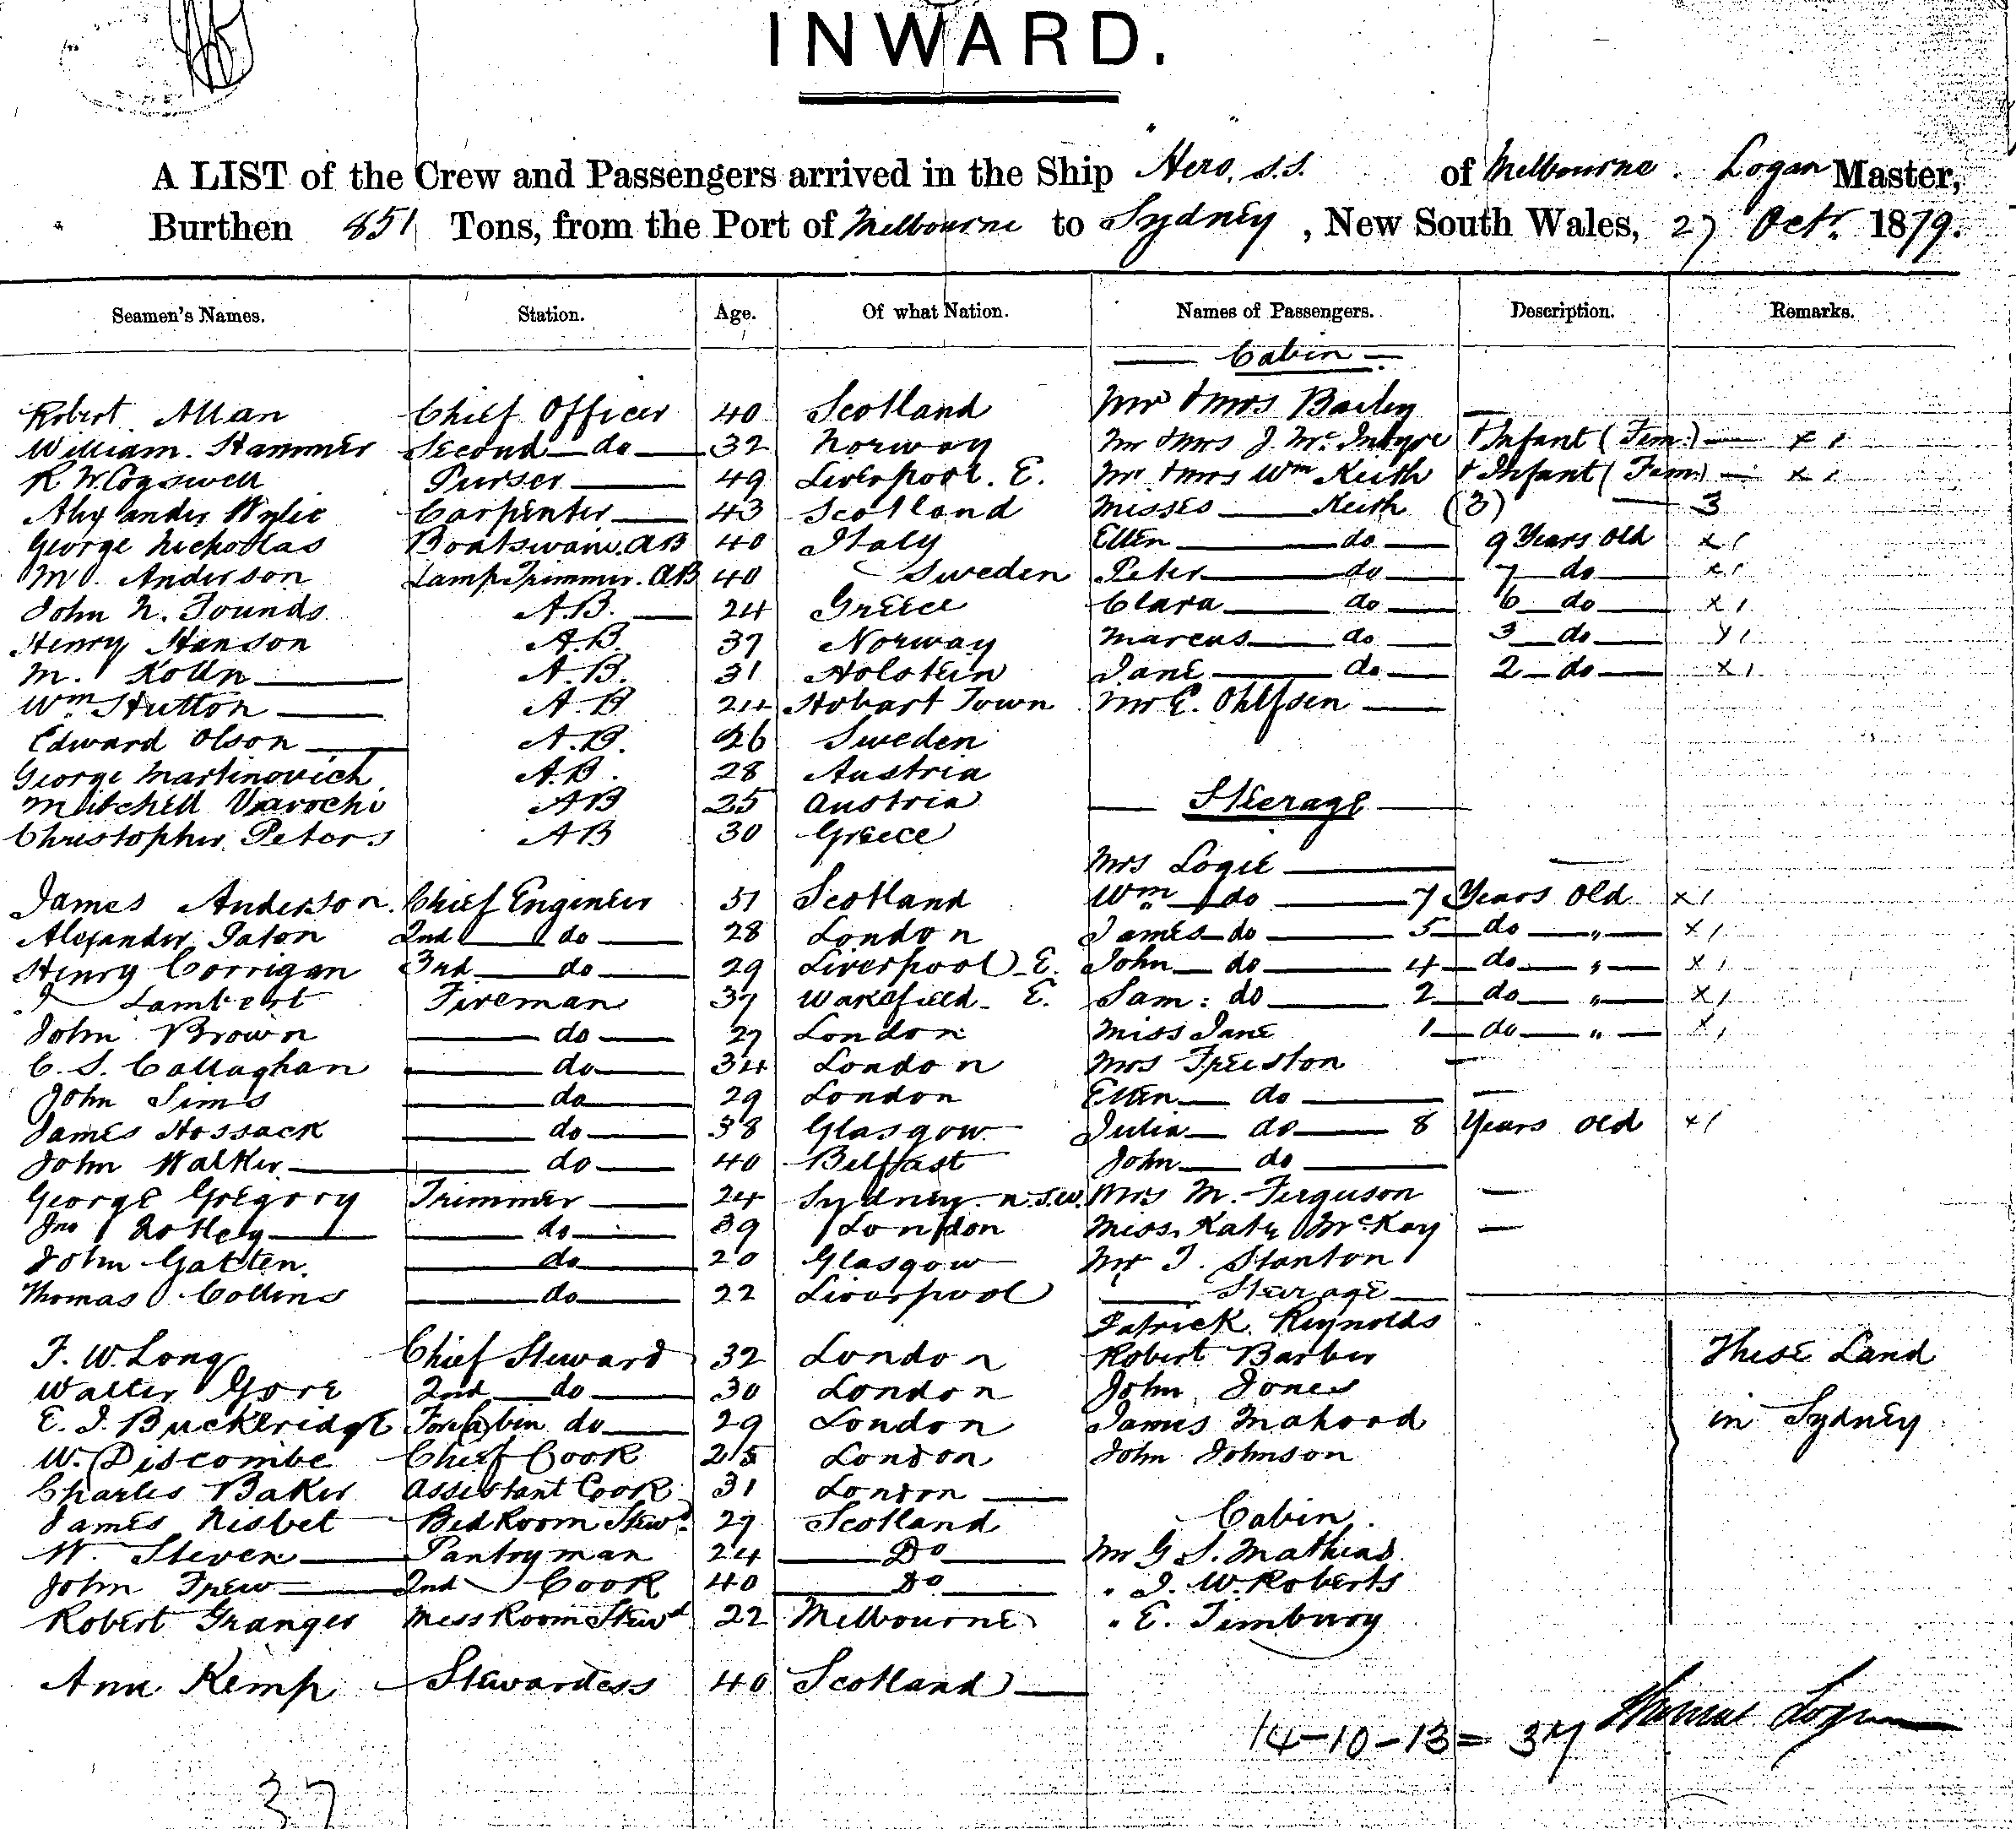 INWARD.
A LIST of the Crew and Passengers arrived in the Ship Hero, s.s. of Melbourne. Logan Master,
Burthen 851 Tons, from the Port of Melbourne to Sydney, New South Wales, 27 Octr. 1879.
Seamen's Names. Station. Age. Of what Nation. Names of Passengers. Description. Remarks.
— Cabin —
Robert Allan Chief Officer 40 Scotland Mr & Mrs Bailey —
William. Hammer Second do 32 Norway Mr & Mrs J. McIntyre & Infant (Fem.) — x 1
R W. Cogswell Purser 49 Liverpool. E. Mr & Mrs Wm Keith & Infant (Fem) — x 1
Alexander Wylie Carpenter 43 Scotland Misses — Keith (3) — 3
George Nichollas Boatswain. AB 40 Italy Ellen — do — 9 Years old x 1
M. Anderson Lamp Trimmer. AB 40 Sweden Peter — do — 7 do — x 1
John N. Founds A.B. — 24 Greece Clara — do — 6 do — x 1
Henry Hanson A.B. 37 Norway Marcus — do — 3 do — x 1
M. Kolln — A.B. 31 Holstein Jane — do — 2 do — x 1
Wm. Hutton — A.B 24 Hobart Town Mr E. Ohlfsen —
Edward Olson — A.B. 26 Sweden
George Martinovich A.B. 28 Austria
Mitchell Varochi AB 25 Austria — Steerage —
Christopher. Peters AB 30 Greece
Mrs Logie — —
James Anderson. Chief Engineer 51 Scotland Wm do — 7 Years old x 1
Alexander Paton 2nd do — 28 London James do — 5 do — " — x 1
Henry Corrigan 3rd do — 29 Liverpool E. John do — 4 do — " — x 1
J Lambert Fireman 37 Wakefield E. Sam: do — 2 do — " — x 1
John Brown — do — 27 London Miss Jane 1 do — " — x 1
C. S. Callaghan — do — 34 London Mrs Freeston —
John Sims — do — 29 London Ellen do — —
James Hossack — do — 38 Glasgow Julia do — 8 Years old x 1
John Walker — do — 40 Belfast John do —
George Gregory Trimmer — 24 Sydney. N.S.W. Mrs M. Ferguson —
Jno — do — 39 London Miss. Kate McKay —
John Gatten. — do — 20 Glasgow Mr J. Stanton
Thomas Collins — do — 22 Liverpool — Steerage —
Patrick Reynolds
F. W. Long Chief Steward 32 London Robert Barber These Land
Walter Gore 2nd do — 30 London John Jones
E. J. Buckeridge Fore Cabin do — 29 London James Mahood in Sydney
W. Discombe Chief Cook 25 London John Johnson
Charles Baker Assistant Cook 31 London —
James Nisbet Bed Room Stewd. 27 Scotland Cabin.
W. Steven — Pantryman 24 — Do — Mr G S. Mathias
John Frew — 2nd Cook 40 — Do — " J. W. Roberts
Robert Granger Mess Room Stewd 22 Melbourne " E. Timbury
Ann Kemp Stewardess 40 Scotland —
14-10-13 = 37 Thomas Logan
37